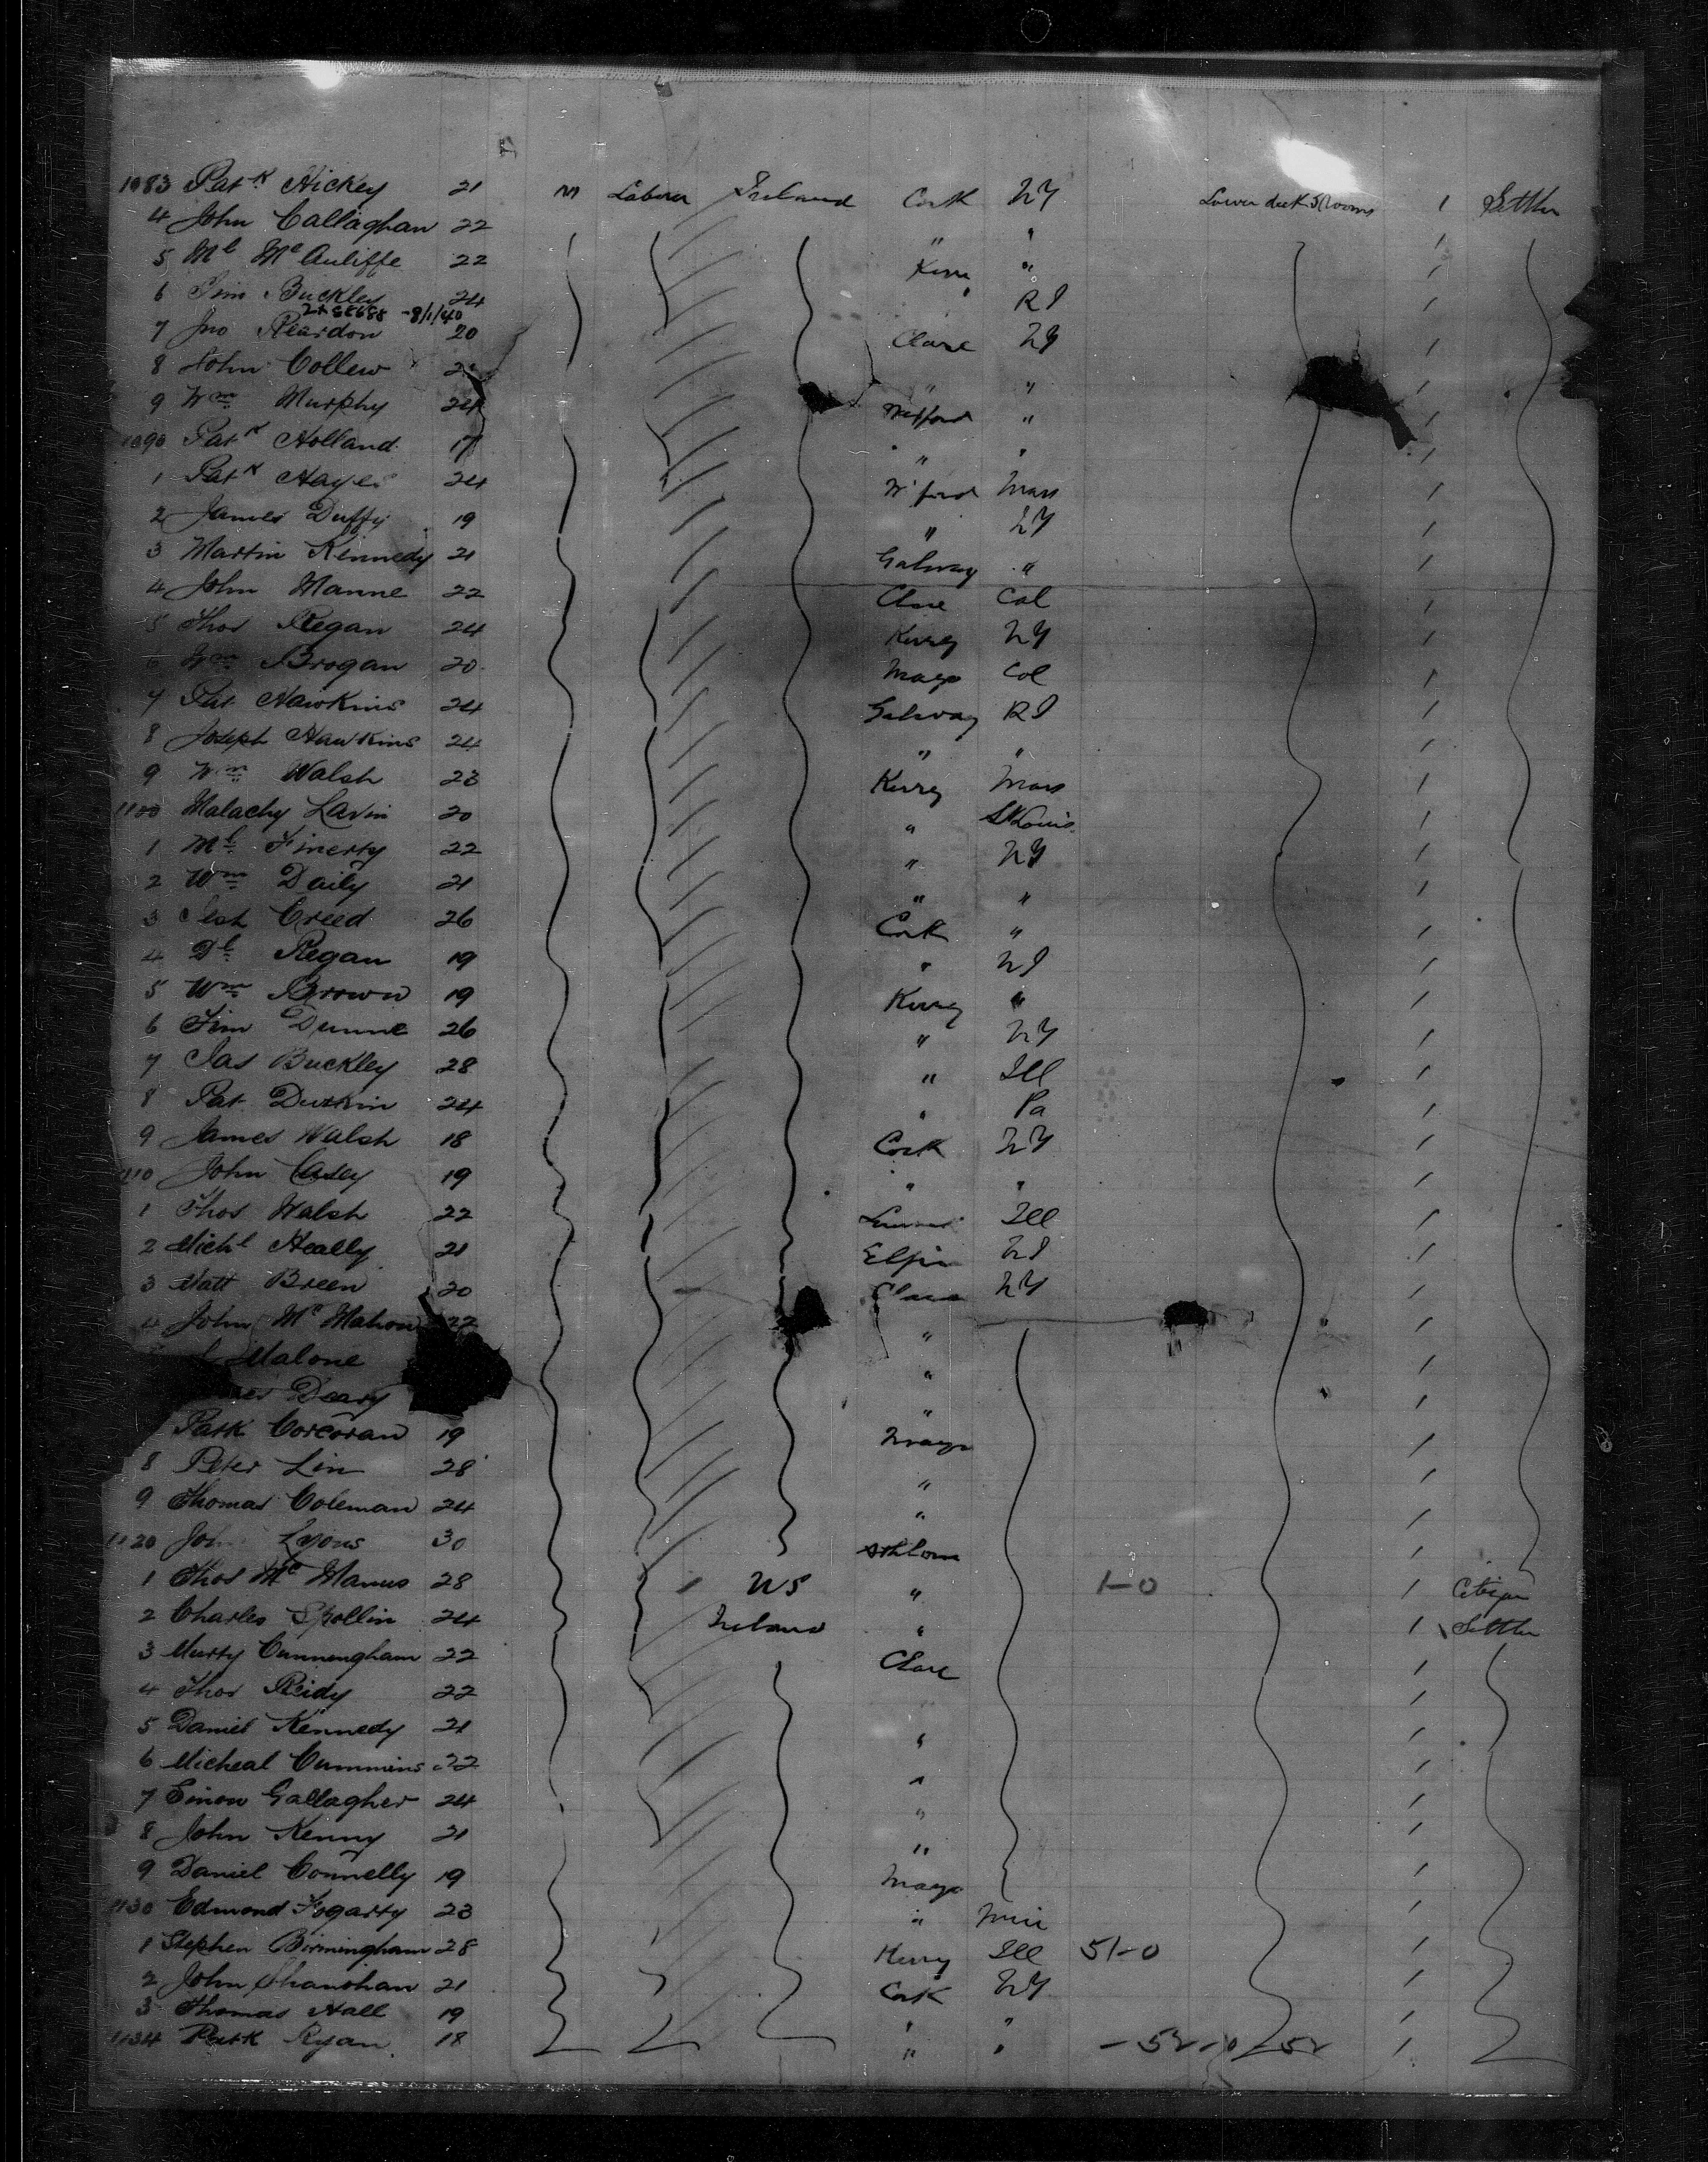 1083 Patk Hickey 21 m Laborer Ireland Cork NY Lower deck 5 Rooms 1 Settler
4 John Callaghan 22 " "
5 Ml McAuliffe 22 Kerry "
6 Tim Buckley 24 " RI
8/1/40
7 Jno Reardon 20 Clare NY
8 John Collew " "
9 Wm Murphy 24 Wexford "
1090 Patk Holland 17 " "
1 Patk Hayes 24 W'ford Mass
2 James Duffy 19 " NY
3 Martin Kennedy 21 Galway "
4 John Manne 22 Clare Cal
5 Thos Regan 24 Kerry NY
6 Wm Brogan 20 Mayo Col
7 Pat Hawkins 24 Galway RI
8 Joseph Hawkins 24 " "
9 Wm Walsh 23 Kerry Mass
1100 Malachy Lavin 20 " St Louis
1 Ml Finerty 22 " NY
2 Wm Daily 21 " "
3 Creed 26 Cork "
4 Dl Regan 19 " NJ
5 Wm Brown 19 Kerry "
6 Tim Dunne 26 " NY
7 Jas Buckley 28 " Ill
8 Pat Durkin 24 " Pa
9 James Walsh 18 Cork NY
1110 John Casey 19 " "
1 Thos Walsh 22 Ill
2 Michl Heally 21 Elfin NJ
3 Matt Breen 20 Clare NY
4 John McMahon 22 "
Malone "
Deary "
Patk Corcoran 19 Mayo
8 Peter Lin 28 "
9 Thomas Coleman 24 "
1120 John Lyons 30 Athlone
1 Thos McManus 28 US " 1-0 Citizen
2 Charles Spollin 24 Ireland " 1 Settler
3 Murty Cunningham 22 Clare
4 Thos Reidy 22
5 Daniel Kennedy 21 "
6 Micheal Cummins 22 "
7 Simon Gallagher 24 "
8 John Kenny 21 "
9 Daniel Connelly 19 Mayo
1130 Edmond Fogarty 23 "
1 Stephen Birmingham 28 Kerry Ill 51-0
2 John Shanahan 21 Cork NY
3 Thomas Hall 19 " "
1134 Patk Ryan 18 " " - 52-0/52